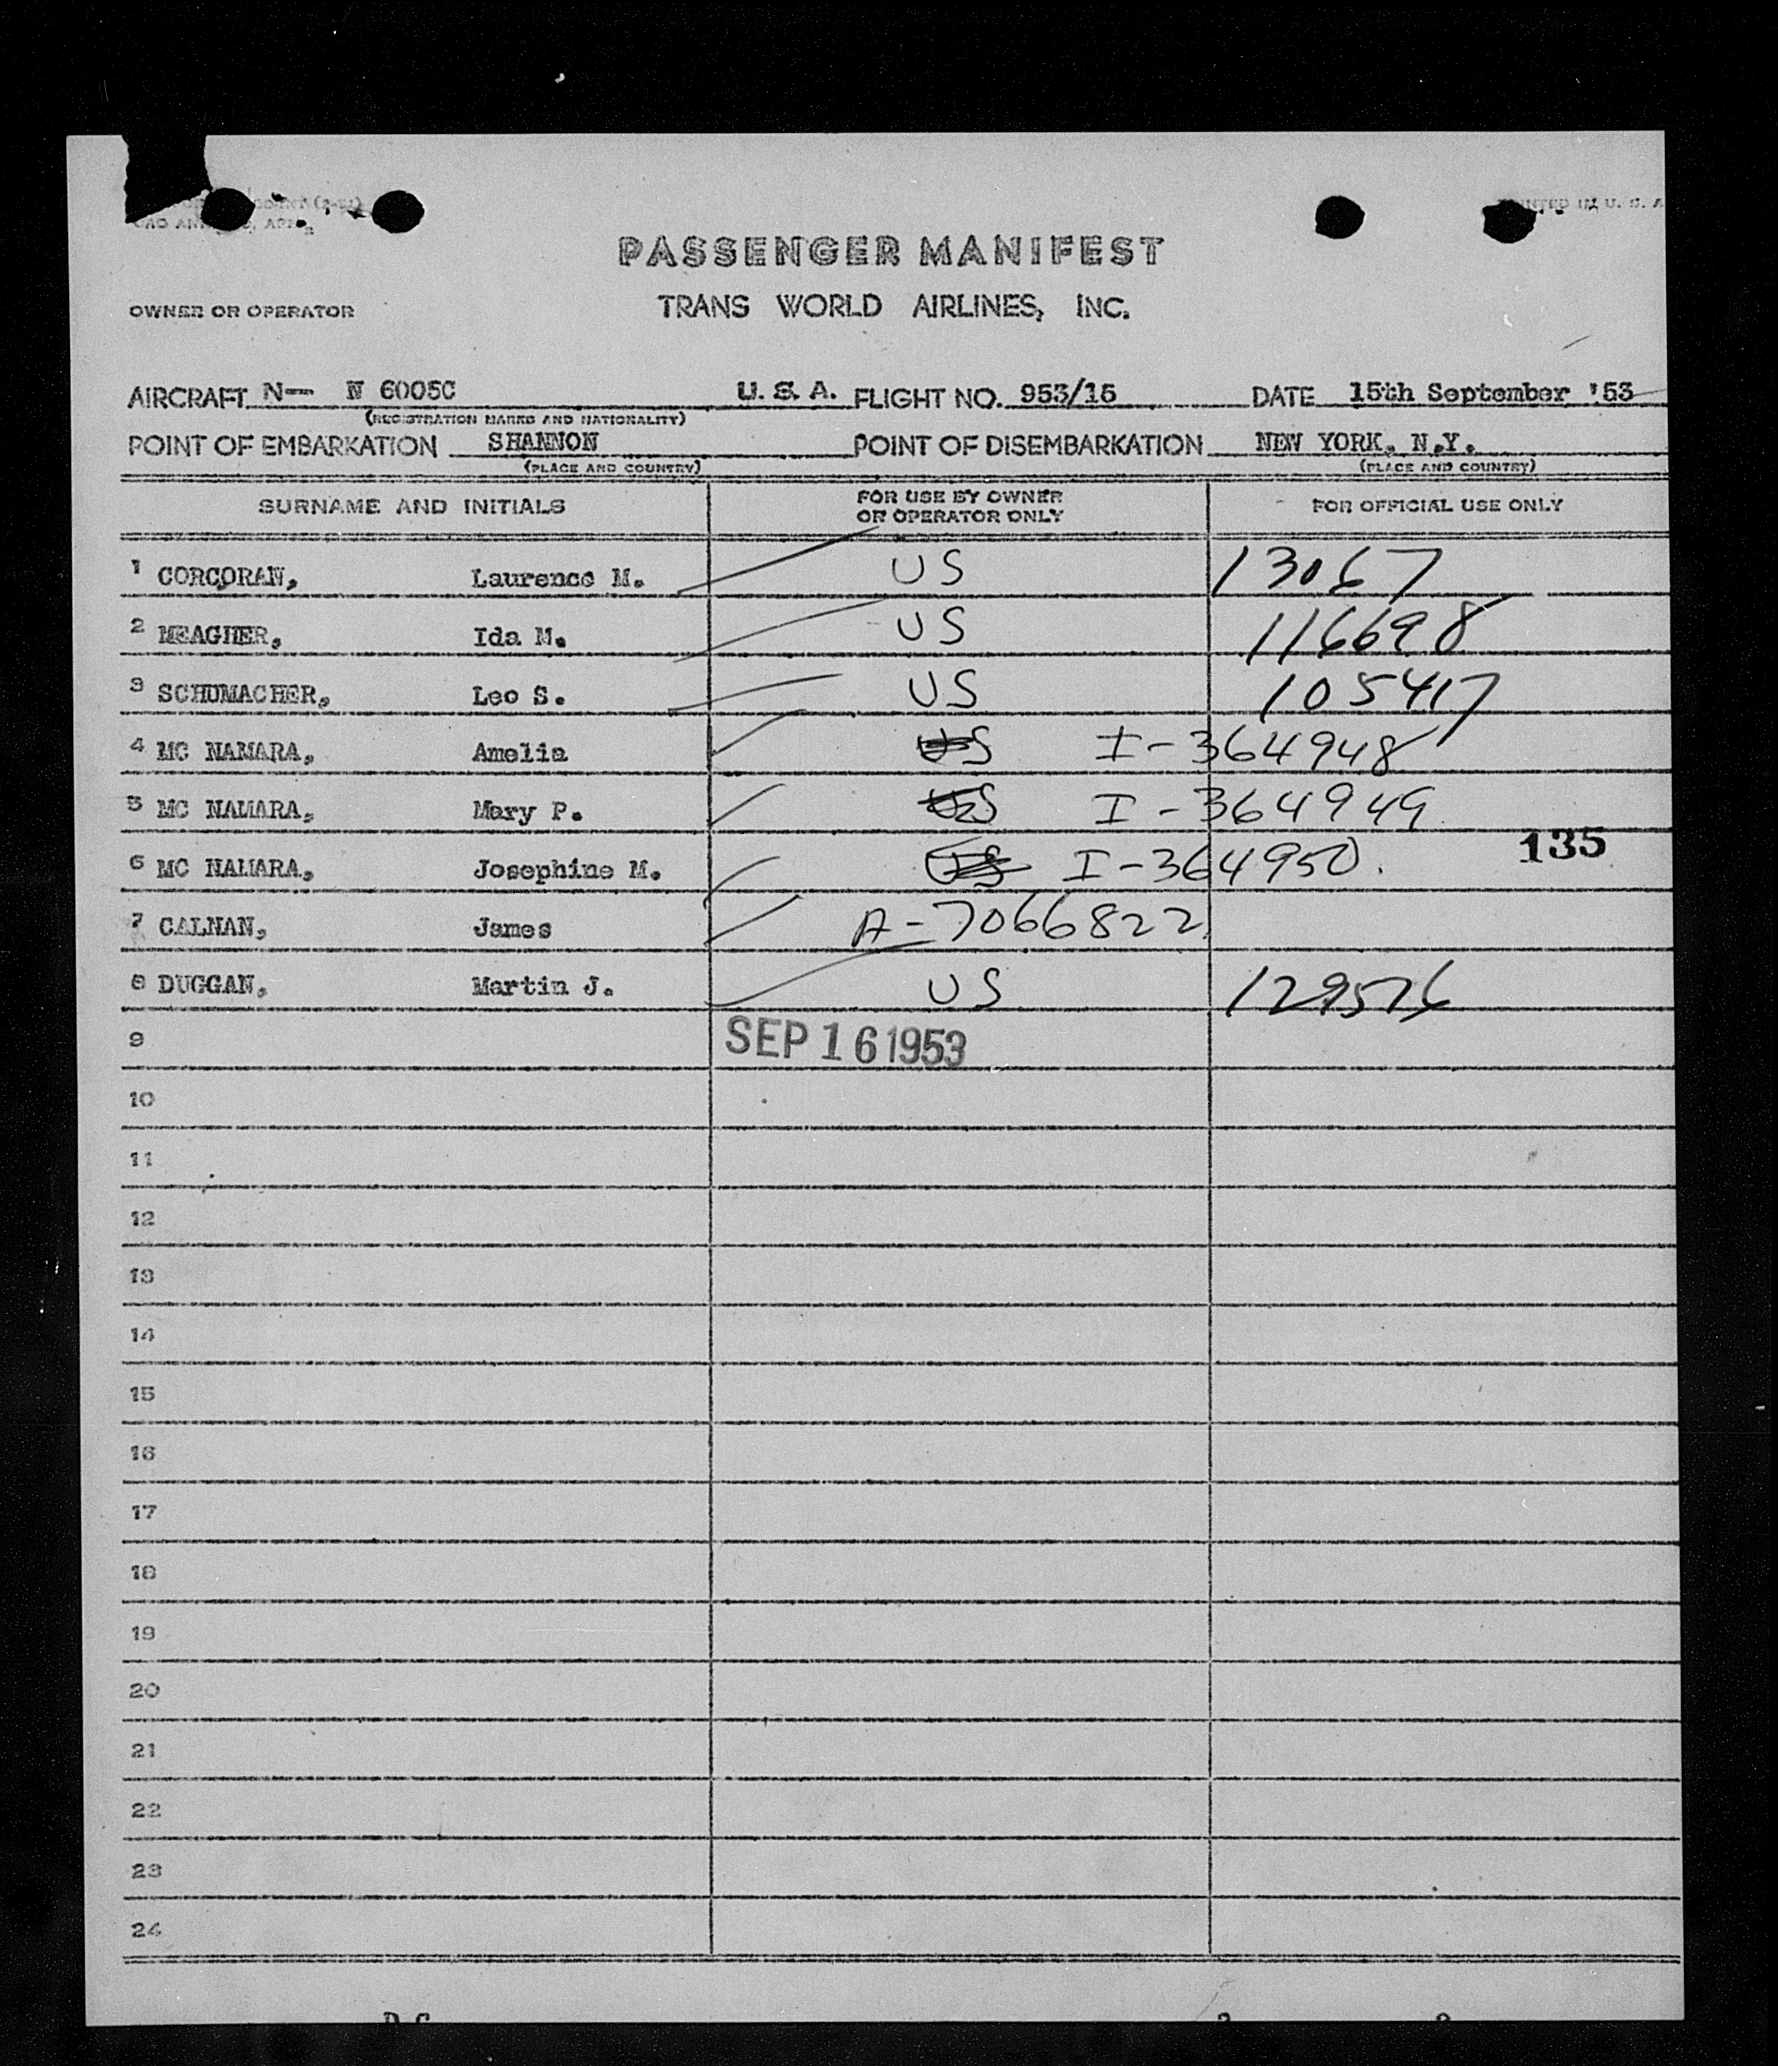 PRINTED IN U. S. A
PASSENGER MANIFEST
OWNER OR OPERATOR TRANS WORLD AIRLINES, INC.
AIRCRAFT N— N 6005C U. S. A. FLIGHT NO. 953/15 DATE 15th September '53
(REGISTRATION MARKS AND NATIONALITY)
POINT OF EMBARKATION SHANNON POINT OF DISEMBARKATION NEW YORK, N.Y.
(PLACE AND COUNTRY) (PLACE AND COUNTRY)
SURNAME AND INITIALS FOR USE BY OWNER OR OPERATOR ONLY FOR OFFICIAL USE ONLY
1 CORCORAN, Laurence M. US 13067
2 MEAGHER, Ida M. US 116698
3 SCHUMACHER, Leo S. US 105417
4 MC NAMARA, Amelia US I-364948
5 MC NAMARA, Mary P. US I-364949
135
6 MC NAMARA, Josephine M. US I-364950.
7 CALNAN, James A-7066822
8 DUGGAN, Martin J. US 129576
9 SEP 16 1953
10
11
12
13
14
15
16
17
18
19
20
21
22
23
24